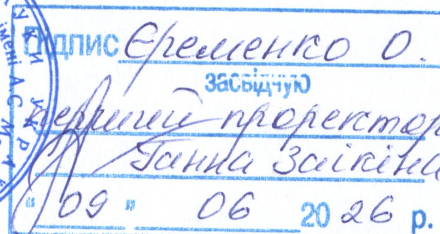 Підпис Єременко О.
засвідчую
перший проректор
Ганна Заікіна
"09" 06 2026 р.
імені А.С.М